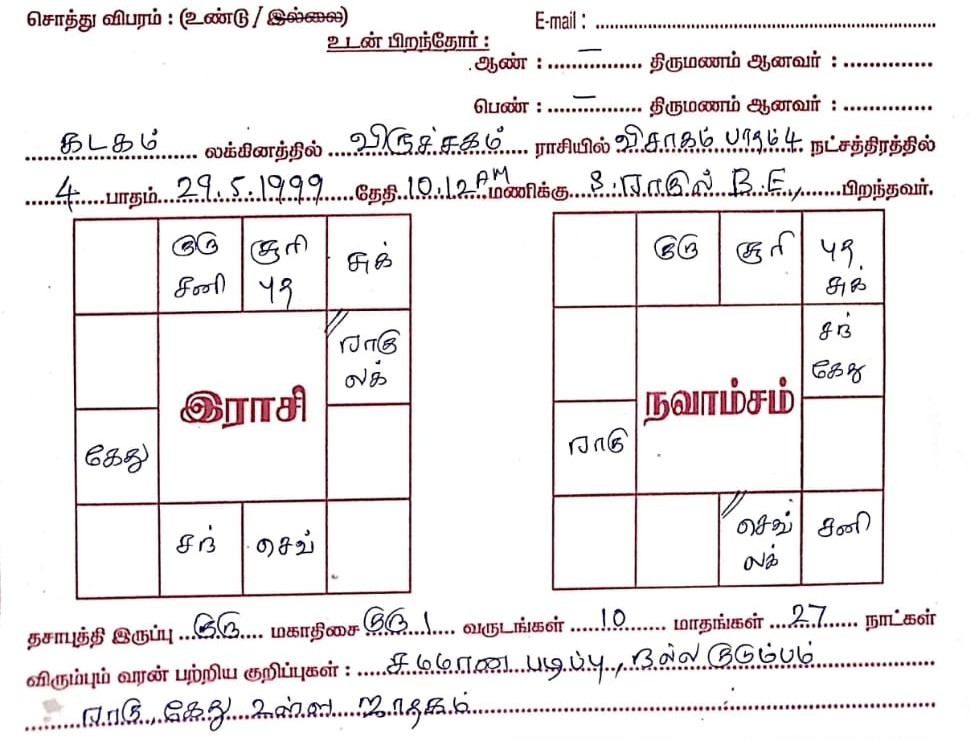 சொத்து விபரம் : (உண்டு / இல்லை) E-mail :
உடன் பிறந்தோர் :
ஆண் : – திருமணம் ஆனவர் :
பெண் : – திருமணம் ஆனவர் :
கடகம் லக்கினத்தில் விருச்சகம் ராசியில் விசாகம் பாதம் 4 நட்சத்திரத்தில்
4 பாதம் 29.5.1999 தேதி 10.12 AM மணிக்கு S. ராகுல் B.E., பிறந்தவர்.
குரு சூரி சுக் குரு சூரி புத
சனி புத சுக்
ராகு சந்
லக் கேது
இராசி நவாம்சம்
கேது ராகு
சந் செவ் செவ் சனி
லக்
தசாபுத்தி இருப்பு குரு மகாதிசை குரு 1 வருடங்கள் 10 மாதங்கள் 27 நாட்கள்
விரும்பும் வரன் பற்றிய குறிப்புகள் : சமமான படிப்பு, நல்ல குடும்பம்
ராகு, கேது உள்ள ஜாதகம்